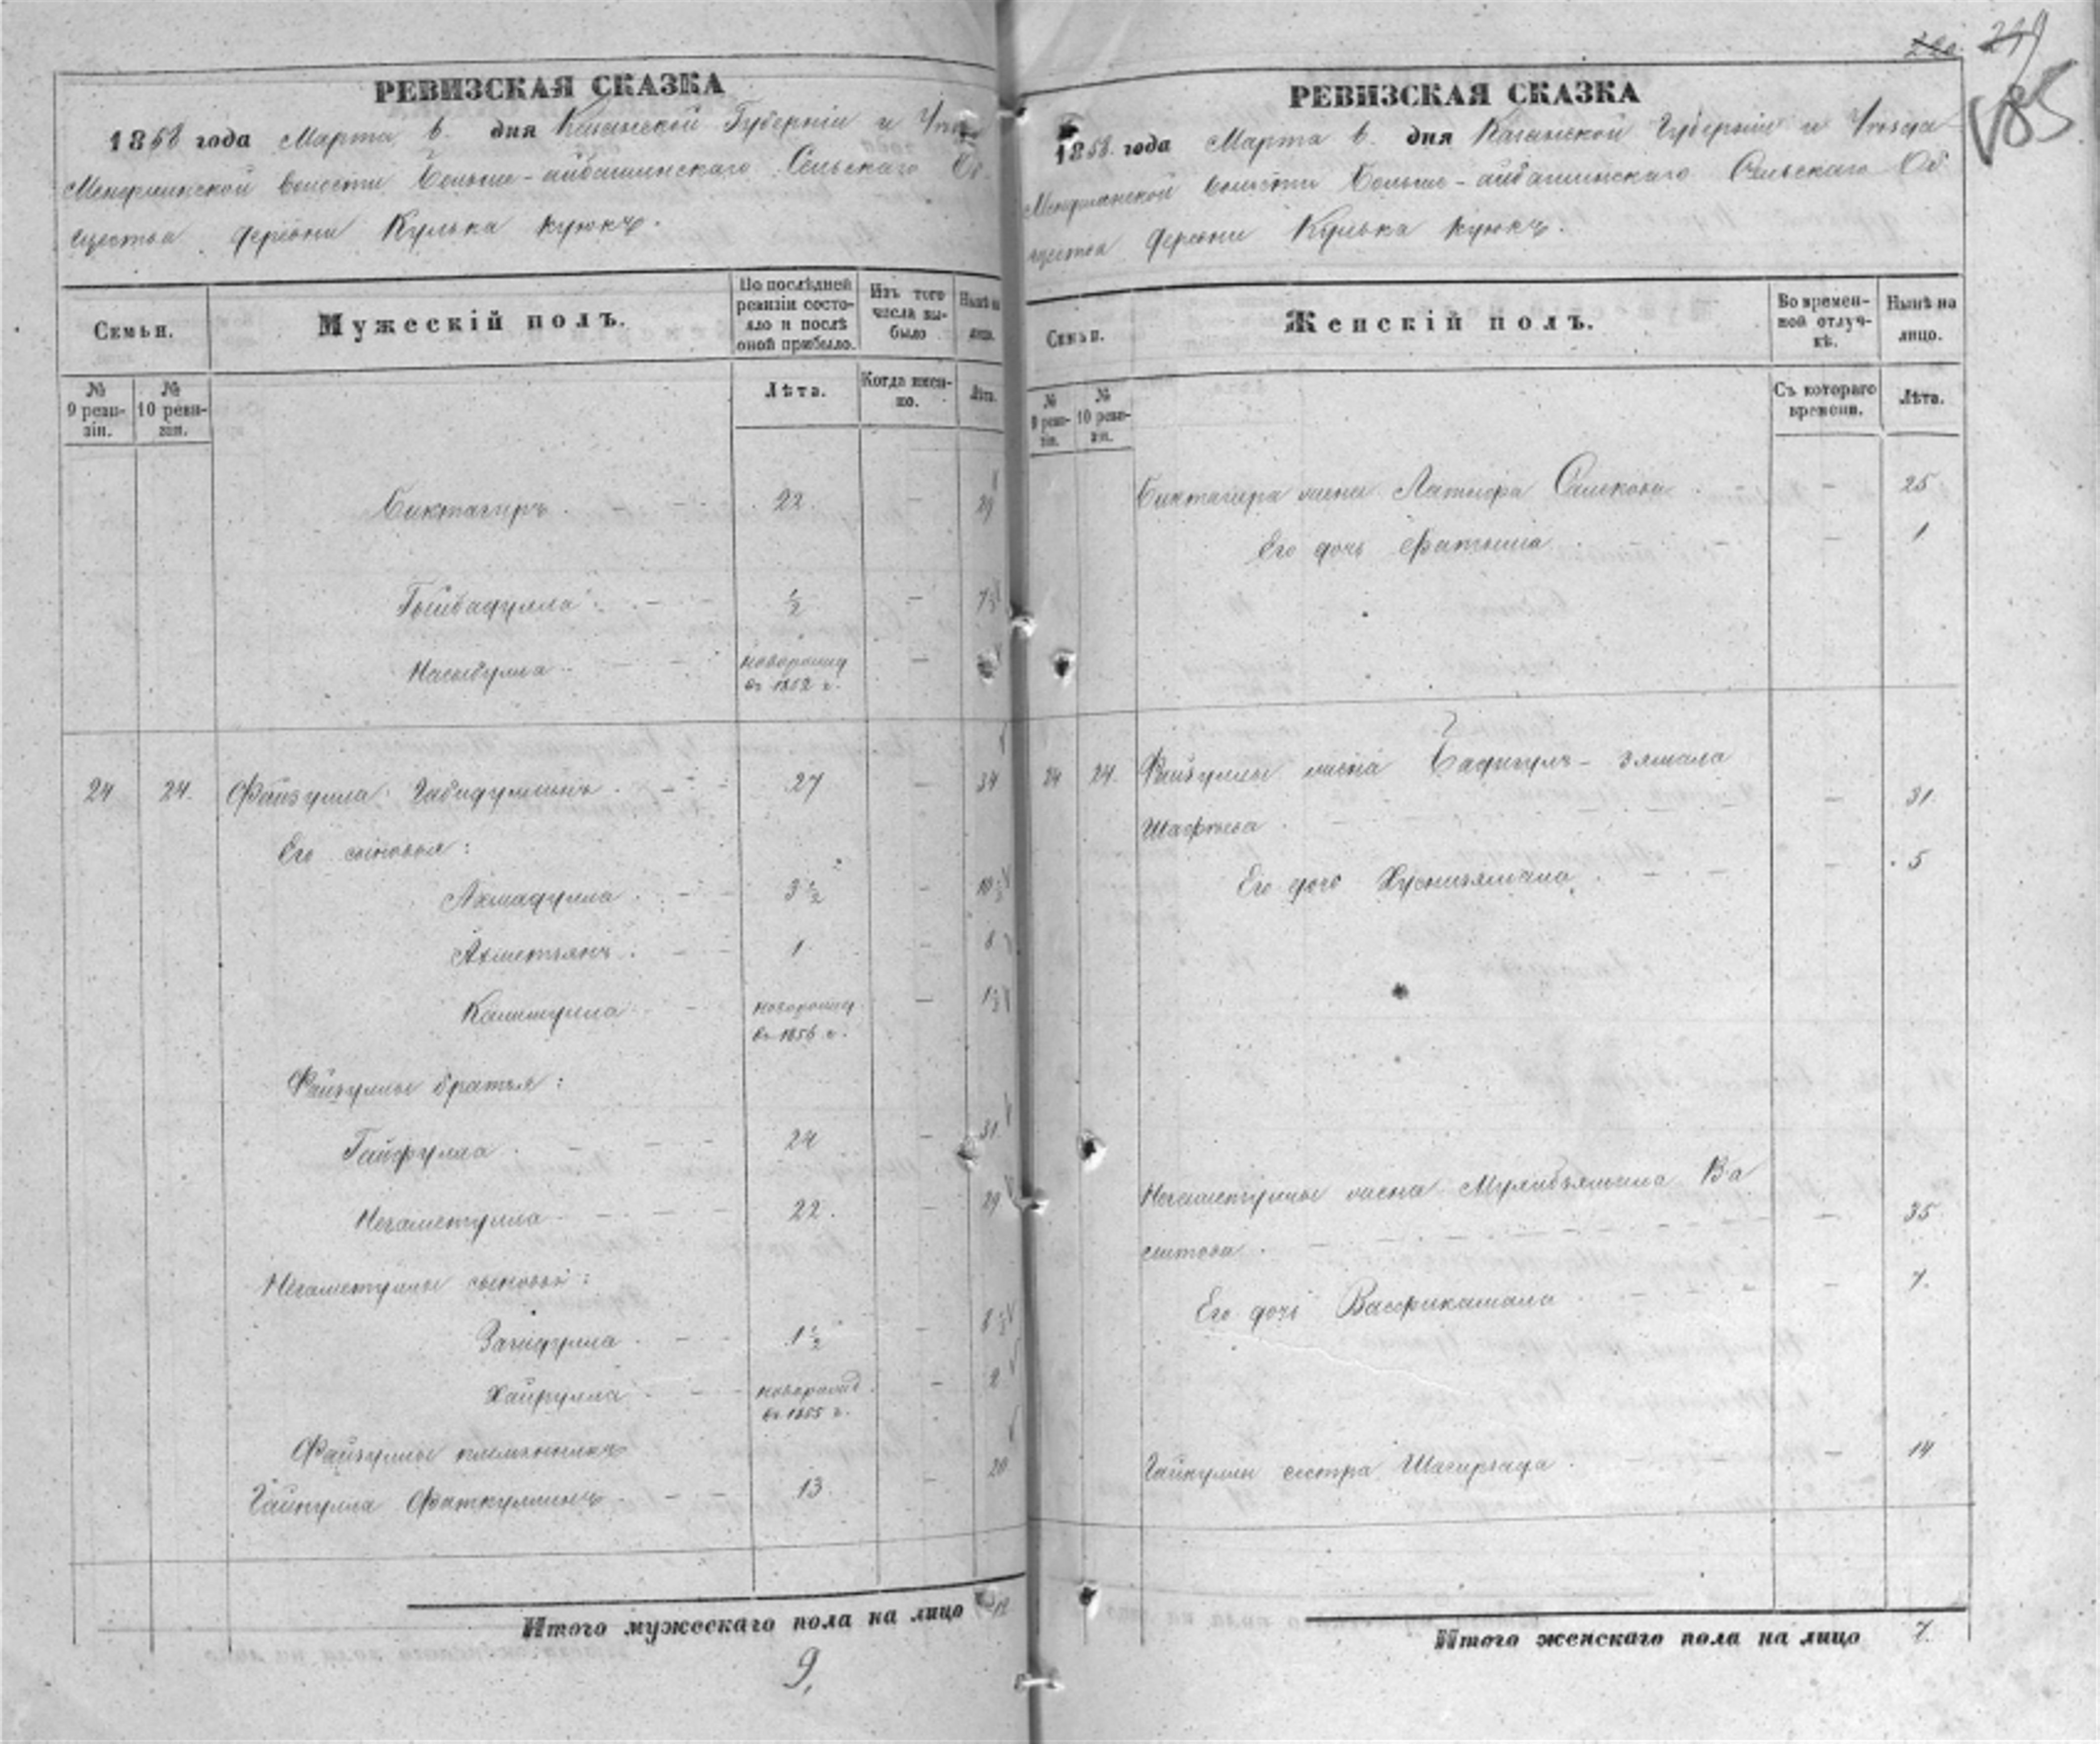 РЕВИЗСКАЯ СКАЗКА
1858 года Марта 6. дня Казанской Губерніи и Уезда
волости Больше-айбашинскаго Сельскаго Об
щества деревни Кулька куюкъ.
Семьи.
Мужескій полъ.
По послѣдней ревизіи состояло и послѣ оной прибыло.
Изъ того числа выбыло
Нынѣ на лицо.
№ 9 ревизіи.
№ 10 ревизіи.
Лѣта.
Когда именно.
Лѣта.
Биктагиръ 22. — 29
½ — 7½
Насыбулла новорожд въ 1852 г. —
24 24. Файзулла Габидуллинъ 27 — 34
Его сыновья:
Ахмадулла 3½ — 10½
Ахметзянъ 1 — 8
Калимулла новорожд въ 1856 г. — 1½
Файзуллы братья:
Гайфулла 24 — 31
Негаметулла 22. — 29
Негаметуллы сыновья:
Загидулла 1½ — 8½
Хайрулла новорожд въ 1855 г. — 2
Файзуллы племянникъ
Гайнулла Фаткуллинъ 13. — 20
Итого мужескаго пола на лицо 12
9,
220. 219
185
РЕВИЗСКАЯ СКАЗКА
1858. года Марта 6. дня Казанской Губерніи и Уезда
волости Больше-айбашинскаго Сельскаго Об
щества деревни Кулька куюкъ.
Семьи.
Женскій полъ.
Во временной отлучкѣ.
Нынѣ на лицо.
№ 9 ревизіи.
№ 10 ревизіи.
Съ котораго времени.
Лѣта.
Биктагира жена Латифа — 25
Его дочь Фатыма — 1
24 24. Файзуллы жена Бадигулъ-зямала
Шафѣева — 31.
Его дочь Хуснизямала — 5
Негаметуллы жена Мулибзямала Ва
ситова — 35
Его дочь Васфикамала — 7.
Гайнуллы сестра Шагирзада — 14
Итого женскаго пола на лицо 7.